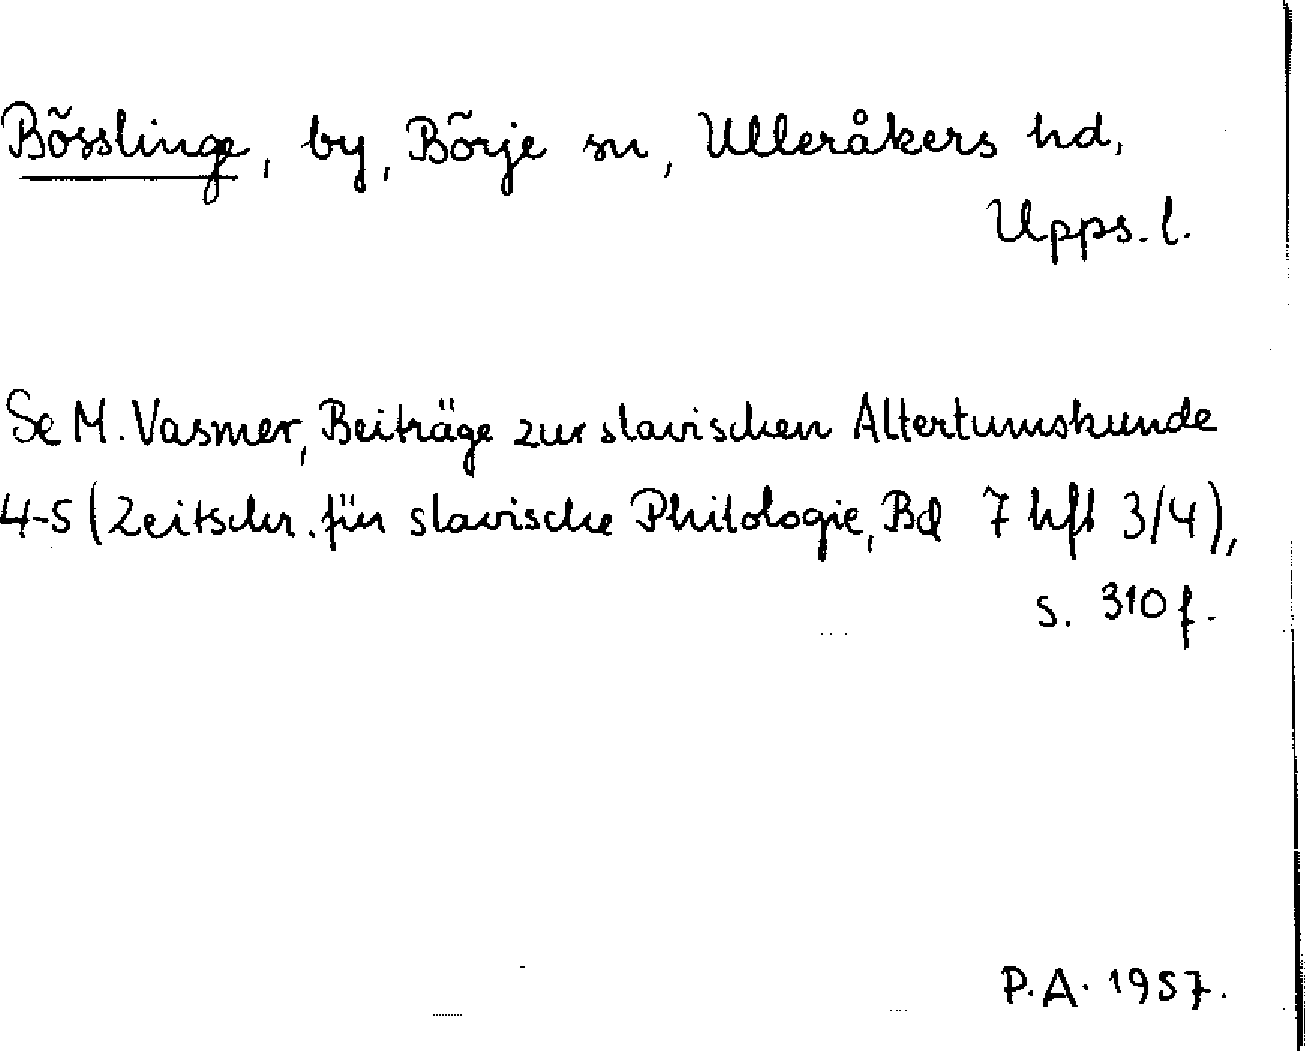 Bösslinge, by, Börje sn, Ulleråkers hd,
Upps. l.
Se M. Vasmer, Beiträge zur slavischen Altertumskunde
4-5 (Zeitschr. für slavische Philologie, Bd 7 hft 3/4),
s. 310 f.
P.A. 1957.